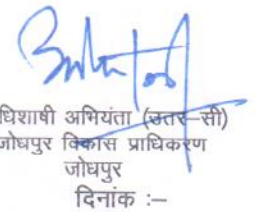 धिशाषी अभियंता (उतर–सी)
जोधपुर विकास प्राधिकरण
जोधपुर
दिनांक :–